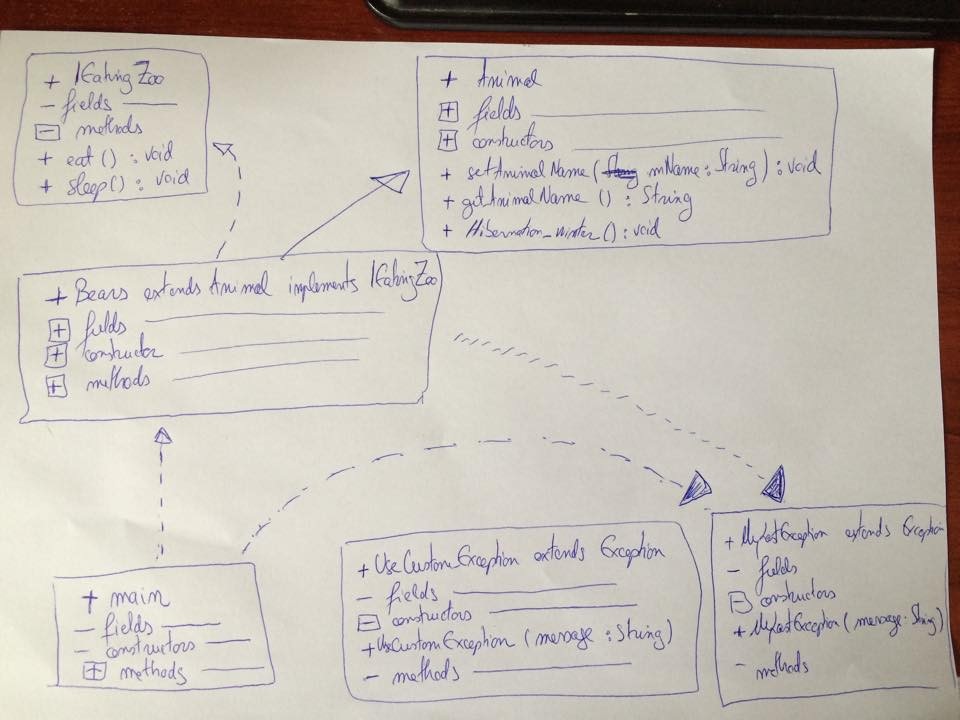 + IEatingZoo
- fields
- methods
+ eat () : void
+ sleep() : void
+ Animal
+ fields
+ constructors
+ setAnimalName ( mName : String ) : void
+ getAnimalName () : String
+ Hibernation_winter () : void
+ Bears extends Animal implements IEatingZoo
+ fields
+ constructor
+ methods
+ main
- fields
- constructors
+ methods
+ UseCustomException extends Exception
- fields
- constructors
+ UseCustomException ( message : String )
- methods
+ MyLastException extends Exception
- fields
- constructors
+ MyLastException ( message : String )
- methods